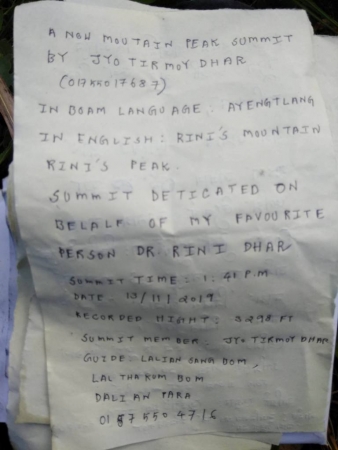 A NEW MOUTAIN PEAK SUMMIT
BY JYOTIRMOY DHAR
(01755017687)
IN BOAM LANGUAGE: AYENGTLANG
IN ENGLISH: RINI'S MOUNTAIN
RINI'S PEAK.
SUMMIT DETICATED ON
BELALF OF MY FAVOURITE
PERSON DR. RINI DHAR
SUMMIT TIME: 1:41 P.M
DATE: 13/11/2019
RECORDED HIGHT: 3298 FT
SUMMIT MEMBER: JYOTIRMOY DHAR
GUIDE: LALIAN SANG BOM,
LAL THAKUM BOM
DALIAN PARA